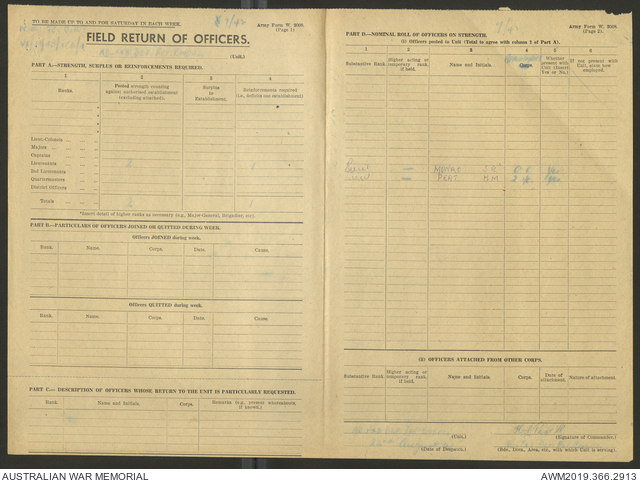 TO BE MADE UP TO AND FOR SATURDAY IN EACH WEEK.
Army Form W. 3008.
(Page 1)
FIELD RETURN OF OFFICERS.
(Unit.)
PART A—STRENGTH, SURPLUS OR REINFORCEMENTS REQUIRED.
1 2 3 4
Ranks. Posted strength counting against authorised establishment (excluding attached). Surplus to Establishment. Reinforcements required (i.e., deficits on establishment)
*
*
*
*
Lieut.-Colonels
Majors
Captains
Lieutenants 2
2nd Lieutenants
Quartermasters
District Officers
Totals 2 1
*Insert detail of higher ranks as necessary (e.g., Major-General, Brigadier, etc).
PART B—PARTICULARS OF OFFICERS JOINED OR QUITTED DURING WEEK.
Officers JOINED during week.
Rank. Name. Corps. Date. Cause.
Officers QUITTED during week.
Rank. Name. Corps. Date. Cause.
PART C—DESCRIPTION OF OFFICERS WHOSE RETURN TO THE UNIT IS PARTICULARLY REQUESTED.
Rank. Name and Initials. Corps. Remarks (e.g., present whereabouts, if known.)
Army Form W. 3008.
(Page 2).
PART D—NOMINAL ROLL OF OFFICERS ON STRENGTH.
(i) Officers posted to Unit (Total to agree with column 2 of Part A).
1 2 3 4 5 6
Substantive Rank. Higher acting or temporary rank if held. Name and Initials. Corps. Whether present with Unit (Insert Yes or No.) If not present with Unit, state how employed.
(ii) OFFICERS ATTACHED FROM OTHER CORPS.
Substantive Rank. Higher acting or temporary rank, if held. Name and Initials. Corps. Date of attachment. Nature of attachment.
(Unit.)
(Signature of Commander.)
(Date of Despatch.)
(Bde., Divn., Area, etc., with which Unit is serving).
AUSTRALIAN WAR MEMORIAL
AWM2019.366.2913